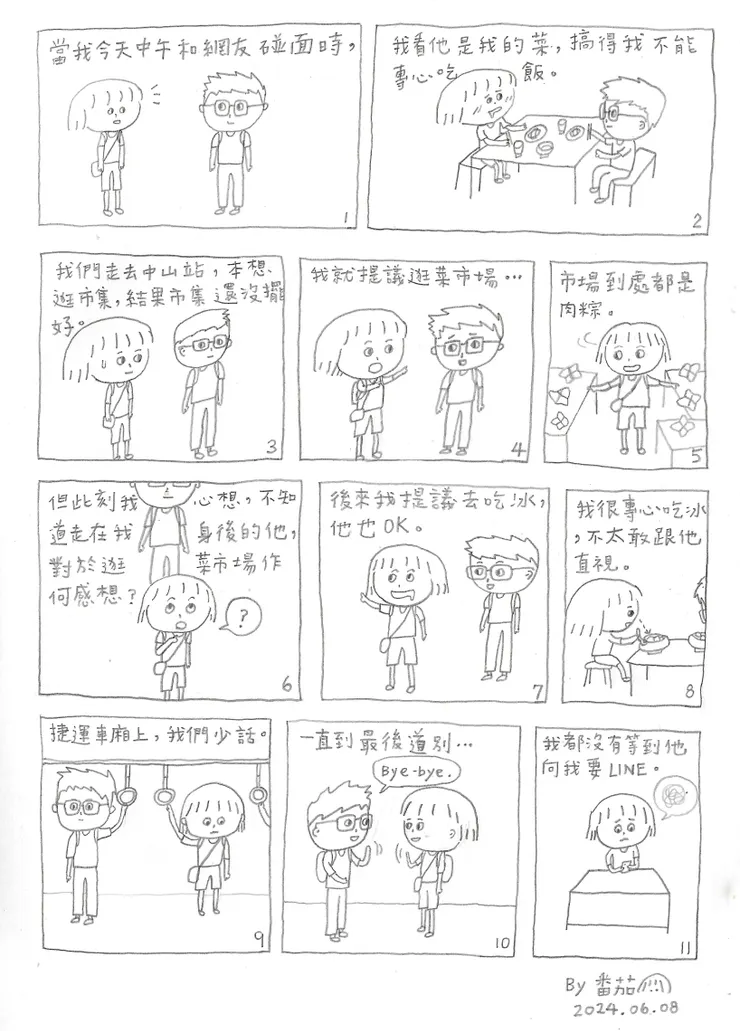 當我今天中午和網友碰面時，
1
我看他是我的菜，搞得我不能
專心吃飯。
2
我們走去中山站，本想
逛市集，結果市集還沒擺
好。
3
我就提議逛菜市場…
4
市場到處都是
肉粽。
5
但此刻我心想，不知
道走在我身後的他，
對於逛菜市場作
何感想？
?
6
後來我提議去吃冰，
他也OK。
7
我很專心吃冰
，不太敢跟他
直視。
8
捷運車廂上，我們少話。
9
一直到最後道別…
Bye-bye.
10
我都沒有等到他
向我要LINE。
11
By 番茄
2024.06.08